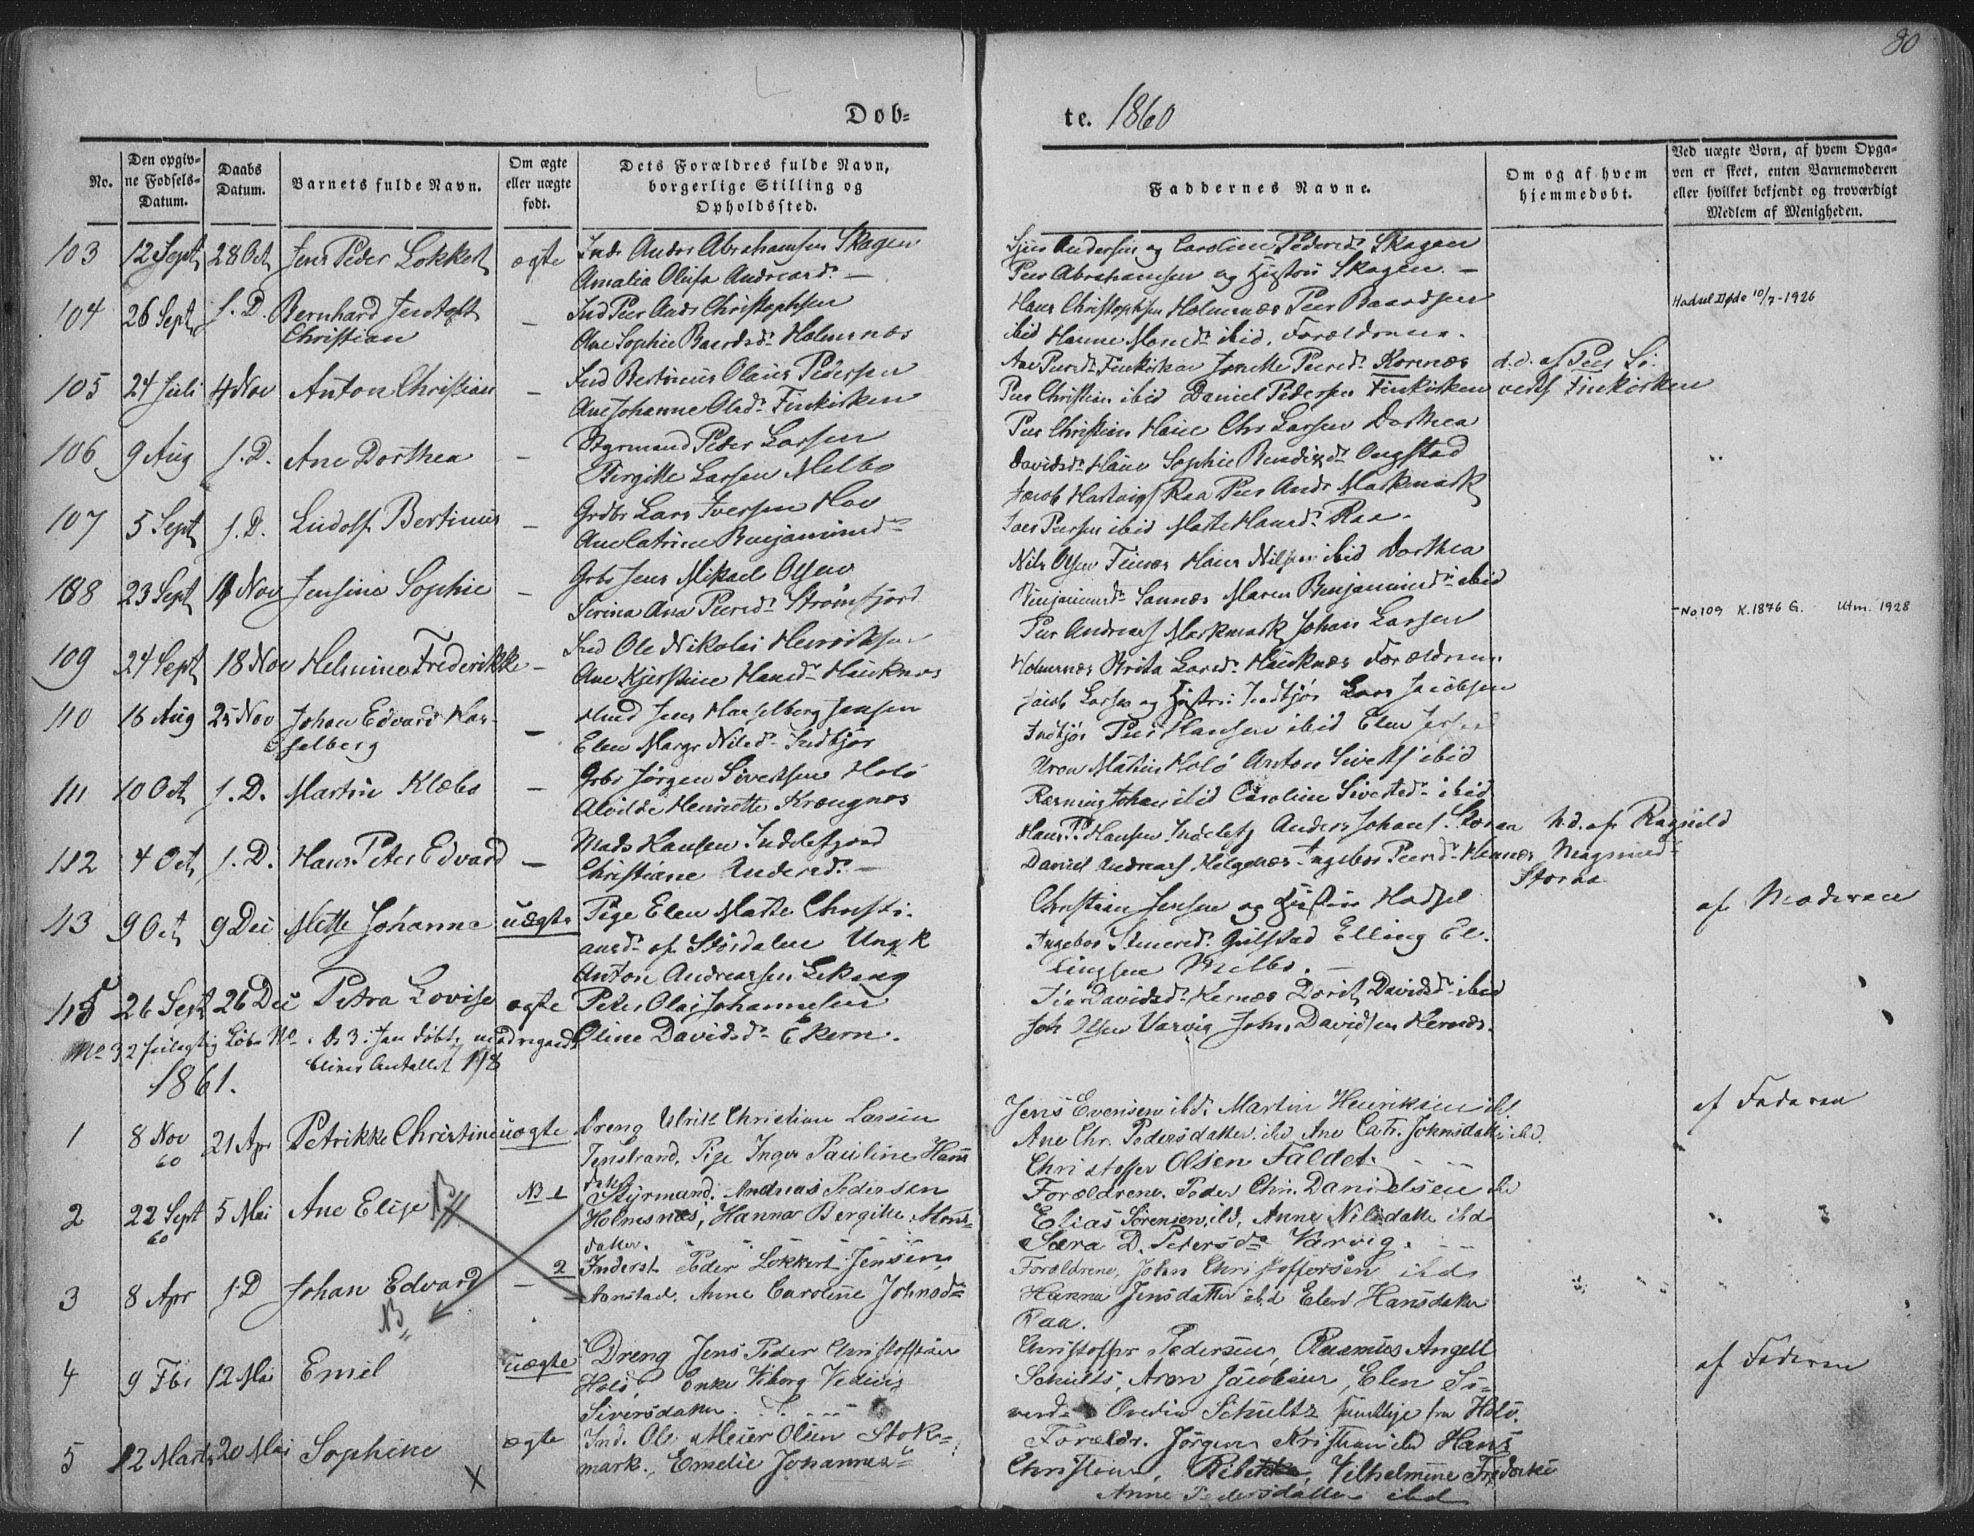 80
Døb-
te. 1860
No.
Den opgiv-
ne Fødsels-
Datum.
Daabs
Datum.
Barnets fulde Navn.
Om ægte
eller uægte
født.
Dets Forældres fulde Navn,
borgerlige Stilling og
Opholdssted.
Faddernes Navne.
Om og af hvem
hjemmedøbt.
Ved uægte Børn, af hvem Opga-
ven er skeet, enten Barnemoderen
eller hvilket bekjendt og troværdigt
Medlem af Menigheden.
103 12 Sept 28 Oct Jens Peder Lokkert ægte Inds Anders Abrahamsen Skagen
Amalia Olufa Andreasdr —
Andersen og Caroline Pedersdr Skagen
Peer Abrahamsen og Hustru Skagen. —
104 26 Sept s. D. Bernhard Jentoft
Christian
— Ind Peer Ands Christophsen
Ane Sophie Baardsdr Holmnæs
Hans Christophsen Holmnæs Peer Baardsen
ibid Hanne Monsdr ibid. Forældrene.
Hadsel Døde 10/7-1926
105 24 Juli 4 Nov Anton Christian — Ind Bertinus Olaus Pedersen
Ane Johanne Olsdr Finkirken
Ane Peersdr Finkirken Jonette Peersdr Kornæs
Peer Christian ibid Daniel Pedersen Finkirken
d.d. af Peer Si-
verts Finkirken
106 9 Aug s. D. Ane Dorthea — Styrmand Peder Larsen
Bergitte Larsen Melbo
Peer Christian Haue Chrs Larsen Dorthea
Davidsdr Haue Sophie Bendixdr Ongstad
107 5 Sept s. D. Ludolf Bertinus — Grdbr Lars Iversen Hov
Ane Catrine Benjaminsdr
Jacob Hartvigs Raa Peer Ands Markmark
Joes Peersen ibid Mette Hansdr Raa.
108 23 Sept 11 Nov Jensine Sophie — Grbr Jens Mikael Olsen
Serina Ana Peersdr Strømfjord
Nils Olsen Finnes Hans Nilsen ibid Dorthea
Benjaminsdr Sannæs Maren Benjaminsdr ibid
No 109 K. 1876 G. Utm. 1928
109 24 Sept 18 Nov Helmine Frederikke — Ind Ole Nikolai Henriksen
Ane Kjerstine Hansdr Hauknæs
Peer Andreas Markmark Johan Larsen
Holmnæs Brita Larsdr Hauknæs Forældrene
110 16 Aug 25 Nov Johan Edvard Has-
selberg
— Hmd Jens Hasselberg Jensen
Elen Margr Nilsdr Indkjør
Jacob Larsen og Hustru Indkjør Lars Jacobsen
Indkjør Peer Hansen ibid Elen
111 10 Oct s. D. Martin Klæbo — Grbr Jørgen Sivertsen Holø
Alvilde Henriette Krængnæs
Aron Martin Holø Anton Siverts ibid
Rasmus Johan ibid Caroline Sivertsdr ibid
112 4 Oct s. D. Hans Peter Edvard — Mads Hansen Indlefjord
Christiane Andersdr —
Hans P. Hansen Indlefj Anders Johans Storaa
Daniel Andreas Helgenæs Ingebor Peersdr Hennæs
h.d. af Ragnild
Magnusdr
Storaa
113 9 Oct 9 Dec Mette Johanna uægte Pige Elen Mette Christi-
ansdr af Størdalen Ungk
Anton Andreassen Lekang
Christian Jensen og Hustru Hadsel
Ingebor Gulstad Elling El-
lingsen Melbo. —
af Moderen
115 26 Sept 26 Dec Petra Lovise ægte Peter Olai Johannesen
Oline Davidsdr Ekern.
Davidsdr Kernæs Dorit Davidsdr ibid
Joh Olsen Varvig John Davidsen Kernæs.
No 32 feilagtig Løbe No.
bliver Antallet 118
1861.
1 8 Nov
60
21 Apr Petrikke Christine uægte Dreng Ulrik Christian Larsen
Tenstrand. Pige Inger Pauline Hans
datter
Jens Evensen ibd. Martin Henriksen ibd
Ane Chr. Pedersdatter ibd Ane Catr. Johnsdatter ibd.
Christoffer Olsen Faldet.
af Faderen
2 22 Sept
60
5 Mai Ane Elise NB NB 1 Styrmand. Andreas Pedersen
Holmesnæs, Hanna Bergitte Mons-
datter.
Forældrene. Peder Chr. Danielsen ibd
Elias Sørensen ibd, Anne Nilsdatter ibd
Sara D. Petersdr Varvig.
3 8 Apr s. D Johan Edvard NB — 2 Inderst Peder Lokkert Jensen
Aanstad. Anne Caroline Johnsdr
Forældrene, John Christoffersen ibd
Hanna Jensdatter ibd Elen Hansdatter
Raa.
4 9 Fbr 12 Mai Emil uægte Dreng Jens Peder Christoffersen
Holø, Enke Viborg Vedvig
Siversdatter.
Christoffer Pedersen, Rasmus Angell
Schults, Aron Jacobsen, Elen Si-
verdr Ovedia Schultz samtlige fra Holø.
af Faderen
5 12 Marts 20 Mai Sophine X ægte Ind. Ole Meier Olsen Stok-
mark., Emelie Johannesdr
Forældr. Jørgen Kristian ibd Hans
Christian, Vilhelmine Frederike
Anne Pedersdatter ibd